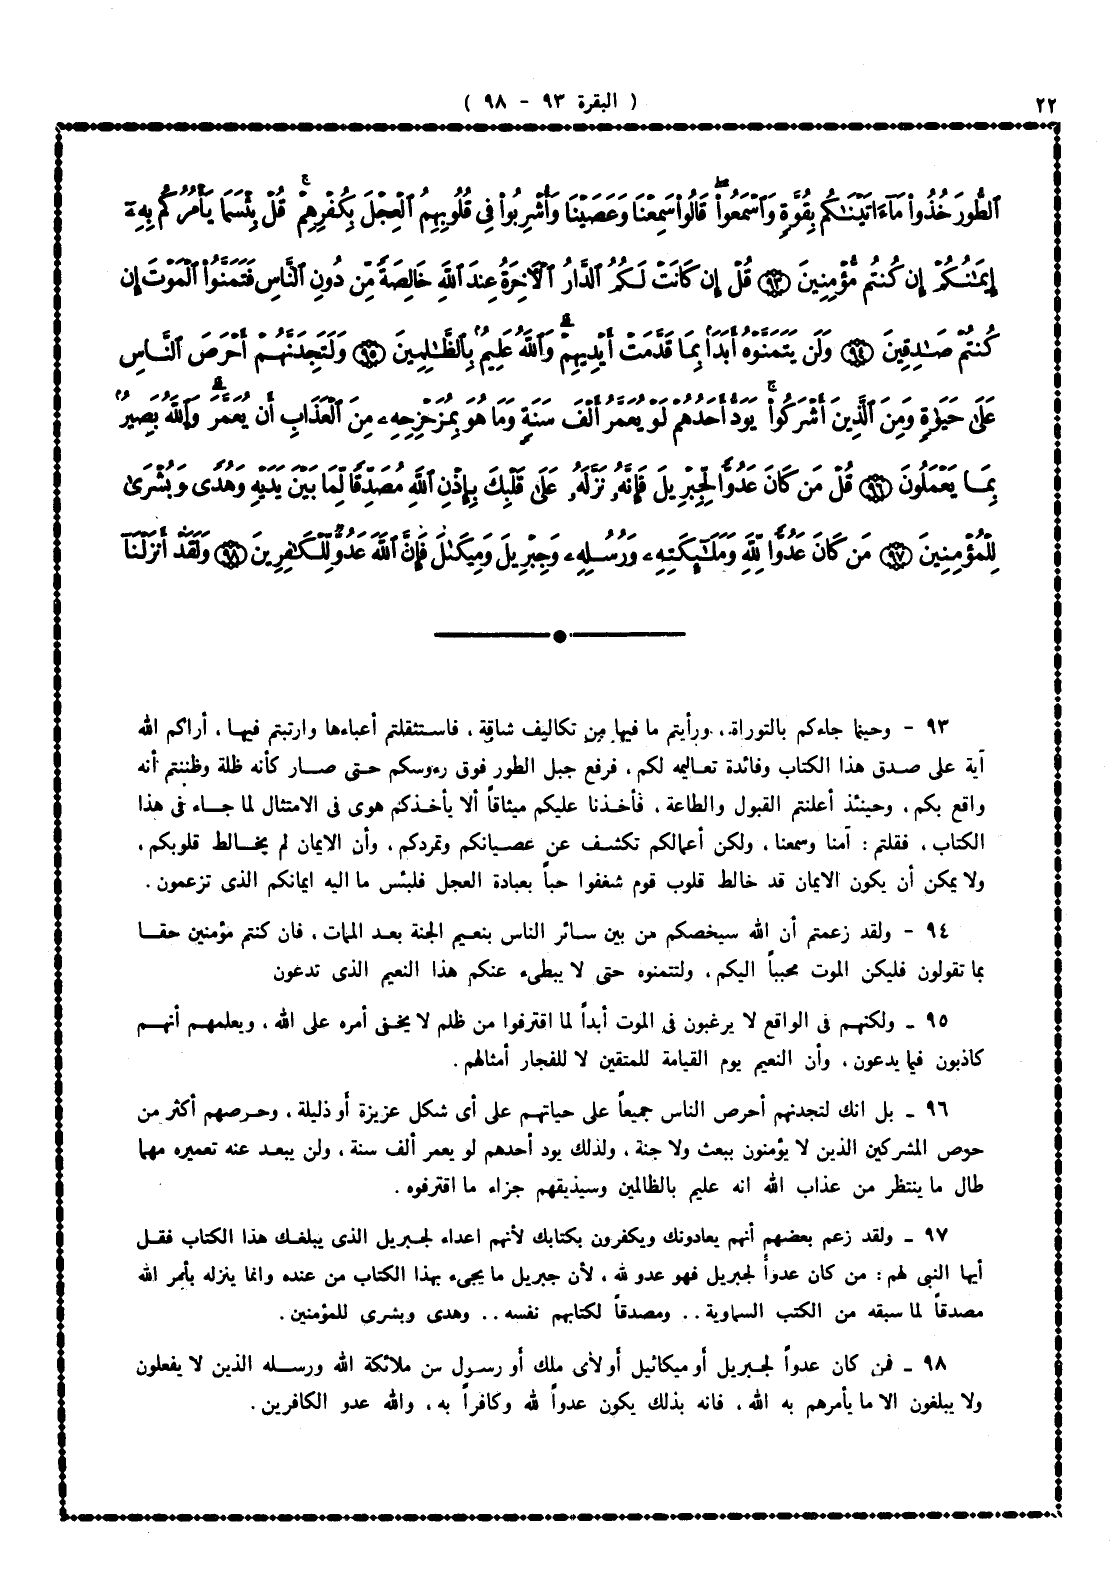 ٢٢
( البقرة ٩٣ - ٩٨ )
ٱلطُّورَ خُذُوا۟ مَآ ءَاتَيْنَـٰكُم بِقُوَّةٍ وَٱسْمَعُوا۟ ۖ قَالُوا۟ سَمِعْنَا وَعَصَيْنَا وَأُشْرِبُوا۟ فِى قُلُوبِهِمُ ٱلْعِجْلَ بِكُفْرِهِمْ ۚ قُلْ بِئْسَمَا يَأْمُرُكُم بِهِۦٓ
إِيمَـٰنُكُمْ إِن كُنتُم مُّؤْمِنِينَ ﴿٩٣﴾ قُلْ إِن كَانَتْ لَكُمُ ٱلدَّارُ ٱلْـَٔاخِرَةُ عِندَ ٱللَّهِ خَالِصَةً مِّن دُونِ ٱلنَّاسِ فَتَمَنَّوُا۟ ٱلْمَوْتَ إِن
كُنتُمْ صَـٰدِقِينَ ﴿٩٤﴾ وَلَن يَتَمَنَّوْهُ أَبَدًۢا بِمَا قَدَّمَتْ أَيْدِيهِمْ ۗ وَٱللَّهُ عَلِيمٌۢ بِٱلظَّـٰلِمِينَ ﴿٩٥﴾ وَلَتَجِدَنَّهُمْ أَحْرَصَ ٱلنَّاسِ
عَلَىٰ حَيَوٰةٍ وَمِنَ ٱلَّذِينَ أَشْرَكُوا۟ ۚ يَوَدُّ أَحَدُهُمْ لَوْ يُعَمَّرُ أَلْفَ سَنَةٍ وَمَا هُوَ بِمُزَحْزِحِهِۦ مِنَ ٱلْعَذَابِ أَن يُعَمَّرَ ۗ وَٱللَّهُ بَصِيرٌۢ
بِمَا يَعْمَلُونَ ﴿٩٦﴾ قُلْ مَن كَانَ عَدُوًّا لِّجِبْرِيلَ فَإِنَّهُۥ نَزَّلَهُۥ عَلَىٰ قَلْبِكَ بِإِذْنِ ٱللَّهِ مُصَدِّقًا لِّمَا بَيْنَ يَدَيْهِ وَهُدًى وَبُشْرَىٰ
لِلْمُؤْمِنِينَ ﴿٩٧﴾ مَن كَانَ عَدُوًّا لِّلَّهِ وَمَلَـٰٓئِكَتِهِۦ وَرُسُلِهِۦ وَجِبْرِيلَ وَمِيكَىٰلَ فَإِنَّ ٱللَّهَ عَدُوٌّ لِّلْكَـٰفِرِينَ ﴿٩٨﴾ وَلَقَدْ أَنزَلْنَآ
٩٣ - وحينما جاءكم بالتوراة، ورأيتم ما فيها من تكاليف شاقة، فاستثقلتم أعباءها وارتبتم فيها، أراكم الله
آية على صدق هذا الكتاب وفائدة تعاليمه لكم، فرفع جبل الطور فوق رءوسكم حتى صار كأنه ظلة وظننتم أنه
واقع بكم، وحينئذ أعلنتم القبول والطاعة، فأخذنا عليكم ميثاقاً ألا يأخذكم هوى فى الامتثال لما جاء فى هذا
الكتاب، فقلتم : آمنا وسمعنا، ولكن أعمالكم تكشف عن عصيانكم وتمردكم، وأن الايمان لم يخالط قلوبكم،
ولا يمكن أن يكون الايمان قد خالط قلوب قوم شغفوا حباً بعبادة العجل فلبئس ما اليه ايمانكم الذى تزعمون.
٩٤ - ولقد زعمتم أن الله سيخصكم من بين سائر الناس بنعيم الجنة بعد الممات، فان كنتم مؤمنين حقا
بما تقولون فليكن الموت محبباً اليكم، ولتتمنوه حتى لا يبطىء عنكم هذا النعيم الذى تدعون
٩٥ ـ ولكنهم فى الواقع لا يرغبون فى الموت أبداً لما اقترفوا من ظلم لا يخفى أمره على الله، ويعلمهم أنهم
كاذبون فيما يدعون، وأن النعيم يوم القيامة للمتقين لا للفجار أمثالهم.
٩٦ ـ بل انك لتجدنهم أحرص الناس جميعاً على حياتهم على أى شكل عزيزة أو ذليلة، وحرصهم أكثر من
حوص المشركين الذين لا يؤمنون ببعث ولا جنة، ولذلك يود أحدهم لو يعمر ألف سنة، ولن يبعد عنه تعميره مهما
طال ما ينتظر من عذاب الله انه عليم بالظالمين وسيذيقهم جزاء ما اقترفوه.
٩٧ ـ ولقد زعم بعضهم أنهم يعادونك ويكفرون بكتابك لأنهم اعداء لجبريل الذى يبلغك هذا الكتاب فقل
أيها النبى لهم : من كان عدواً لجبريل فهو عدو لله، لأن جبريل ما يجىء بهذا الكتاب من عنده وانما ينزله بأمر الله
مصدقاً لما سبقه من الكتب السماوية .. ومصدقاً لكتابهم نفسه .. وهدى وبشرى للمؤمنين.
٩٨ ـ فمن كان عدواً لجبريل أو ميكائيل أو لأى ملك أو رسول من ملائكة الله ورسله الذين لا يفعلون
ولا يبلغون الا ما يأمرهم به الله، فانه بذلك يكون عدواً لله وكافراً به، والله عدو الكافرين.